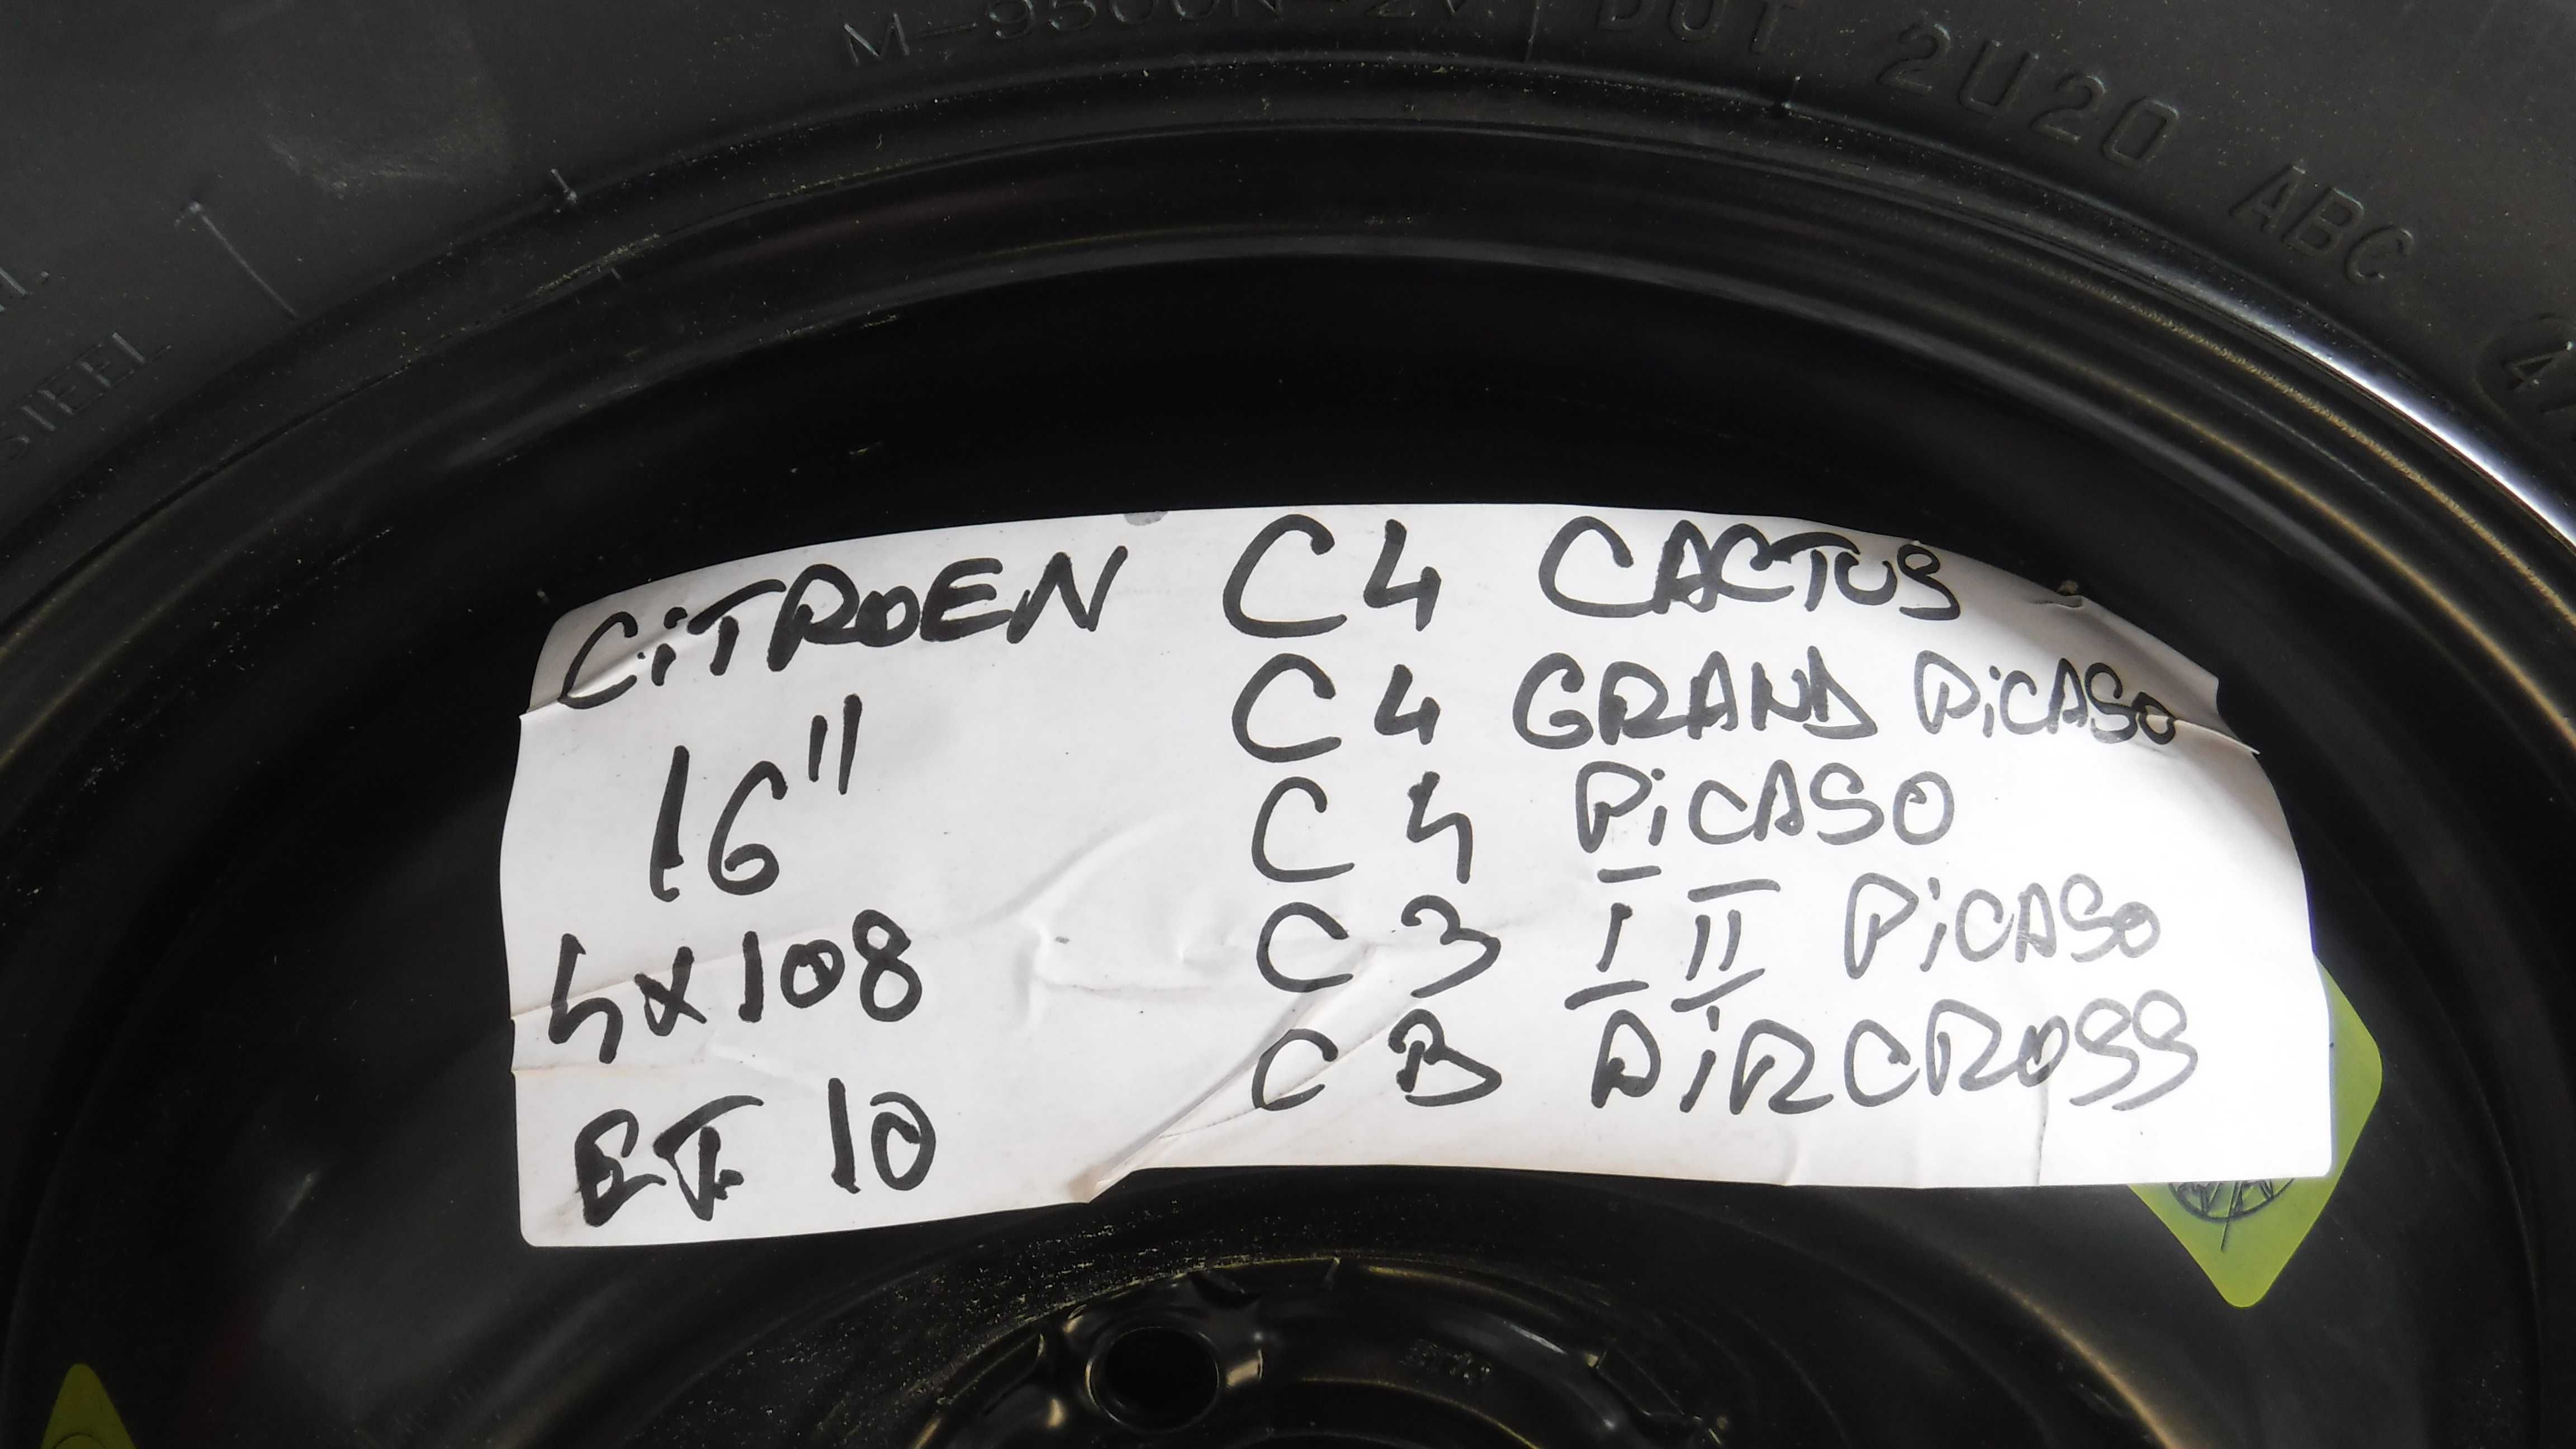 DOT 2U20 ABC
STEEL
CiTROEN C4 CACTUS
16" C4 GRAND PiCASO
C4 PiCASO
4x108 C3 I II PiCASO
ET 10 C3 AiRCROSS